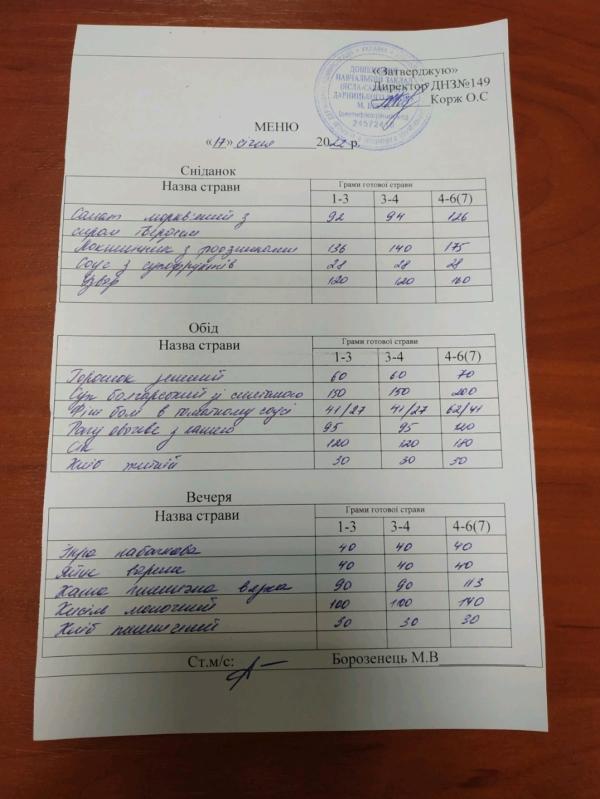 «Затверджую»
Директор ДНЗ№149
Корж О.С
24572480
МЕНЮ
«17» січня 2022 р.
Сніданок
Назва страви Грами готової страви
1-3 3-4 4-6(7)
Салат морквяний з 92 94 126
сиром твердим
Локшинник з родзинками 136 140 175
Соус з сухофруктів 28 28 28
Узвар 120 120 160
Обід
Назва страви Грами готової страви
1-3 3-4 4-6(7)
Горошок зелений 60 60 70
Суп болгарський зі сметаною 150 150 200
Фіш бол в томатному соусі 41/27 41/27 62/41
Рагу овочеве з кашею 95 95
Сік 120 120 180
Хліб житній 30 30 30
Вечеря
Назва страви Грами готової страви
1-3 3-4 4-6(7)
Ікра кабачкова 40 40 40
Яйце варене 40 40 40
Каша пшенична вязка 90 90 113
Кисіль молочний 100 100 140
Хліб пшеничний 30 30 30
Ст.м/с: Борозенець М.В